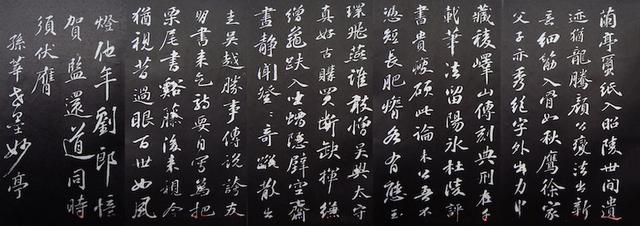 蘭亭繭紙入昭陵世間遺
迹猶龍騰顏公變法出新
意細筋入骨如秋鷹徐家
父子亦秀絕字外出力中
藏稜嶧山傳刻典刑在千
載筆法留陽冰杜陵評
書貴瘦硬此論未公吾不
憑短長肥瘠各有態玉
環飛燕誰敢憎吳興太守
真好古購買斷缺揮縑
繒龜趺入坐螭隱壁空齋
晝靜聞登登奇蹤散出
走吳越勝事傳說誇友
朋書來乞詩要自寫為把
栗尾書谿藤後來視今
猶視昔過眼百世如風
燈他年劉郎憶
賀監還道同時
須伏膺
孫莘老墨妙亭